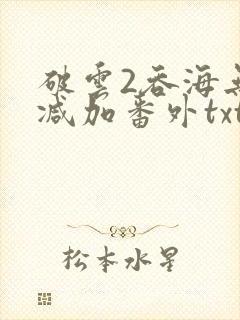 破雲2吞海
减加番外txt
松本水星